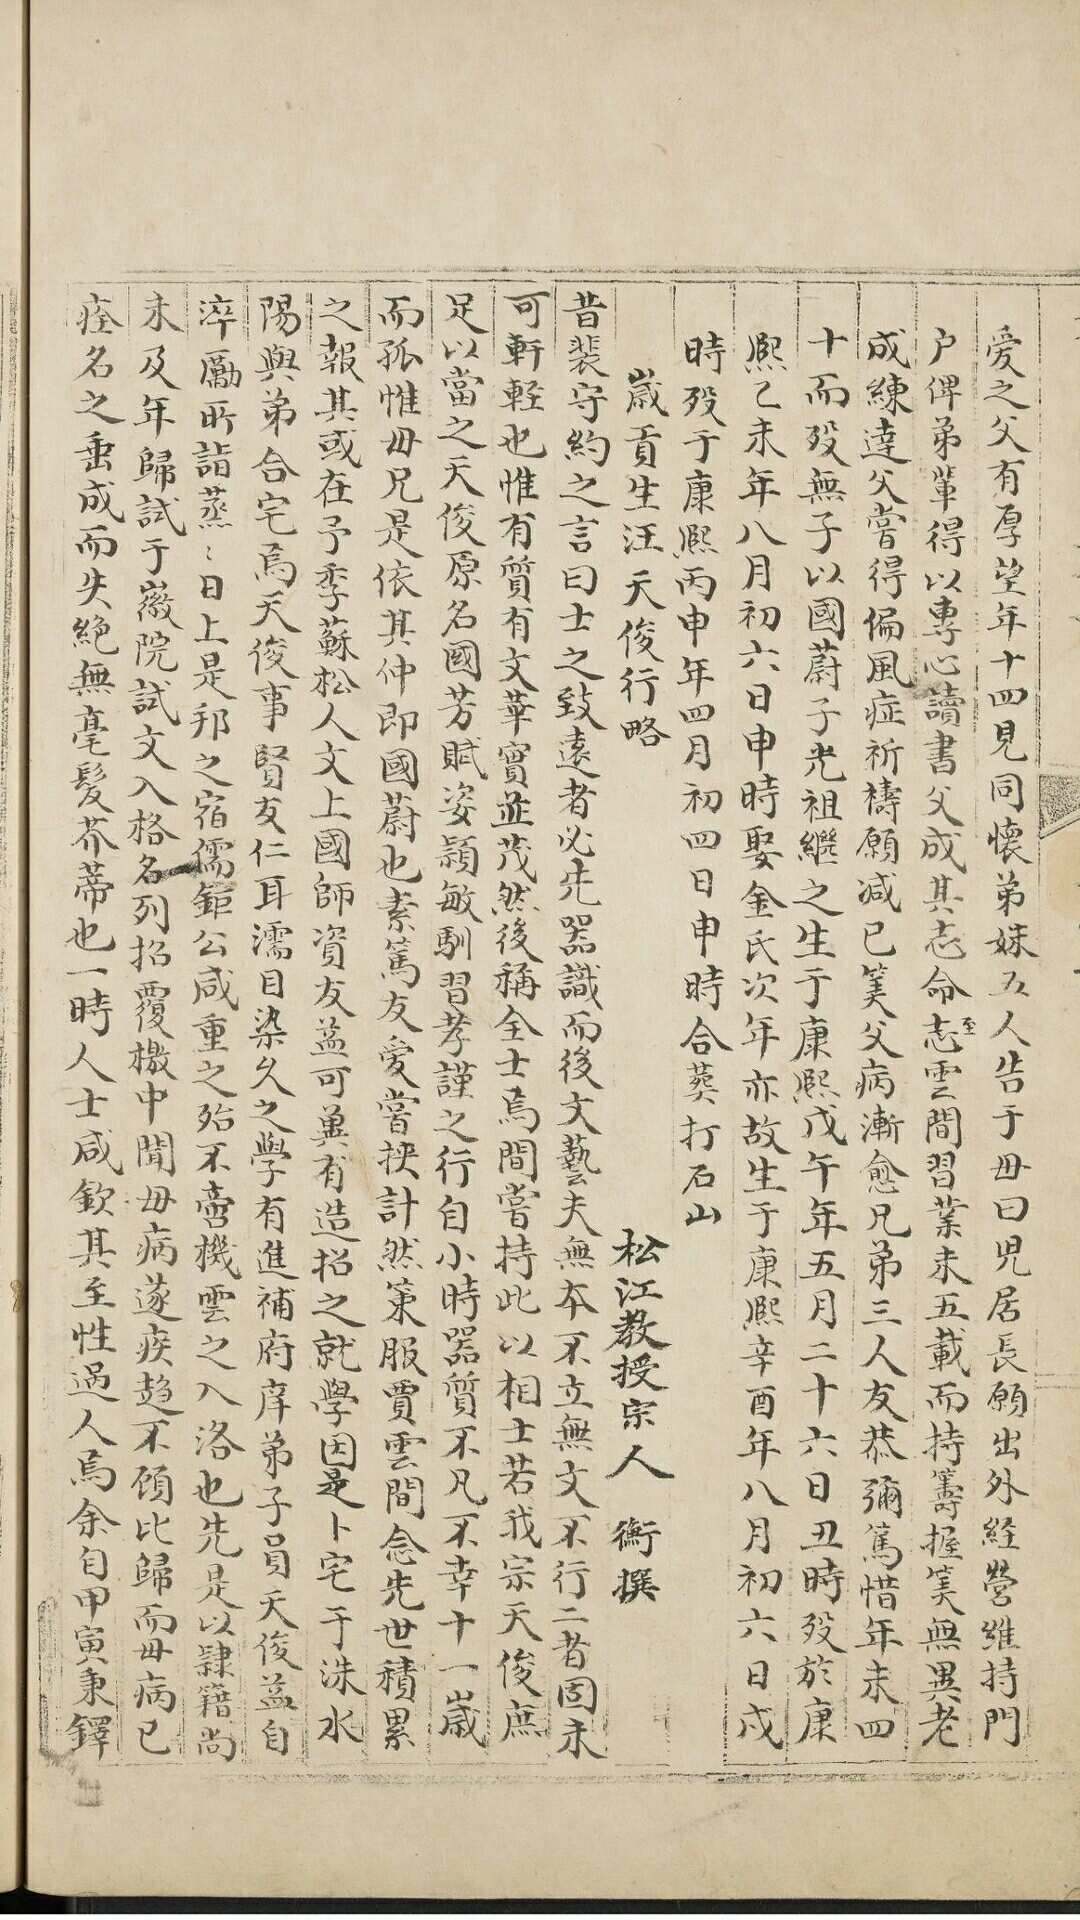 愛之父有厚望年十四見同懷弟妹五人告于母曰兒居長願出外経營維持門
户俾弟輩得以專心讀書父成其志命至志雲間習業未五載而持籌握筭無異老
成練達父嘗得偏風症祈禱願减已筭父病漸愈兄弟三人友恭彌篤惜年未四
十而殁無子以國蔚子光祖繼之生于康熙戊午年五月二十六日丑時殁於康
熙乙未年八月初六日申時娶金氏次年亦故生于康熙辛酉年八月初六日戍
時殁于康熙丙申年四月初四日申時合葬打石山
歲貢生汪天俊行略
松江教授宗人　衡撰
昔裴守約之言曰士之致遠者必先器識而後文藝夫無本不立無文不行二者固未
可軒輊也惟有質有文華實並茂然後稱全士焉間嘗持此以相士若我宗天俊庶
足以當之天俊原名國芳賦姿頴敏馴習孝謹之行自小時器質不凡不幸十一歲
而孤惟母兄是依其仲即國蔚也素篤友愛嘗挾計然策服賈雲間念先世積累
之報其或在予季蘇松人文上國師資友益可冀有造招之就學因是卜宅于洙水
陽與弟合宅焉天俊事賢友仁耳濡目染久之學有進補府庠弟子員天俊益自
淬勵所詣蒸〻日上是邦之宿儒鉅公咸重之殆不啻機雲之入洛也先是以隸籍尚
未及年歸試于徽院試文入格名列招覆檄中聞母病遂疾趋不顧比歸而母病已
痊名之垂成而失絶無毫髮芥蒂也一時人士咸欽其至性過人焉余自甲寅秉鐸